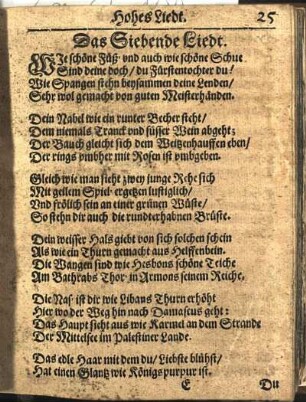 Hohes Liedt. 25
Das Siebende Liedt.
WJe schöne Füß' vnd auch wie schöne Schue
Sind deine doch / du Fürstentochter du!
Wie Spangen stehn beysammen deine Lenden /
Sehr wol gemacht von guten Meisterhänden.
Dein Nabel wie ein runter Becher steht /
Dem niemals Tranck vnd süsser Wein abgeht;
Der Bauch gleicht sich dem Weitzenhauffen eben /
Der rings vmbher mit Rosen ist vmbgeben.
Gleich wie man sieht zwey junge Rehe sich
Mit geilem Spiel ergetzen lustiglich /
Vnd frölich sein an einer grünen Wüste /
So stehn dir auch die rundterhabnen Brüste.
Dein weisser Hals giebt von sich solchen schein
Als wie ein Thurn gemacht aus Helffenbein.
Die Wangen sind wie Hesbons schöne Teiche
Am Bathrabs Thor in Armons seinem Reiche.
Die Nas' ist dir wie Libans Thurn erhöht
Hier wo der Weg hin nach Damascus geht:
Das Haupt sieht aus wie Karmel an dem Strande
Der Mittelsee im Palestiner Lande.
Das edle Haar mit dem du / Liebste blühst /
Hat einen Glantz wie Königs purpur ist.
E Du